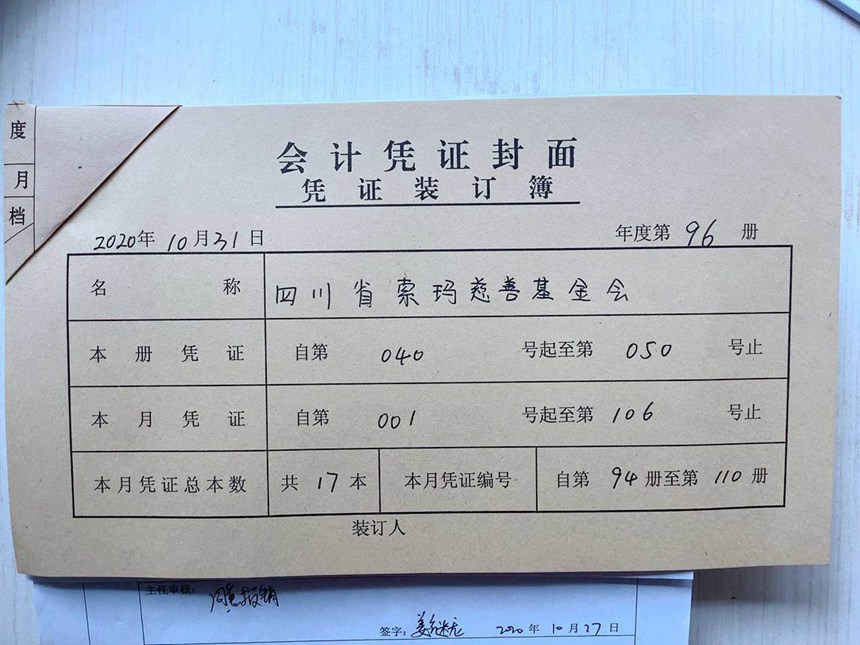 度
月
档
会计凭证封面
凭证装订簿
2020年 10月31日 年度第 96 册
名称 四川省索玛慈善基金会
本册凭证 自第 040 号起至第 050 号止
本月凭证 自第 001 号起至第 106 号止
本月凭证总本数 共 17 本 本月凭证编号 自第 94 册至第 110 册
装订人
主任审核: 同意报销
签字: 2020年10月27日